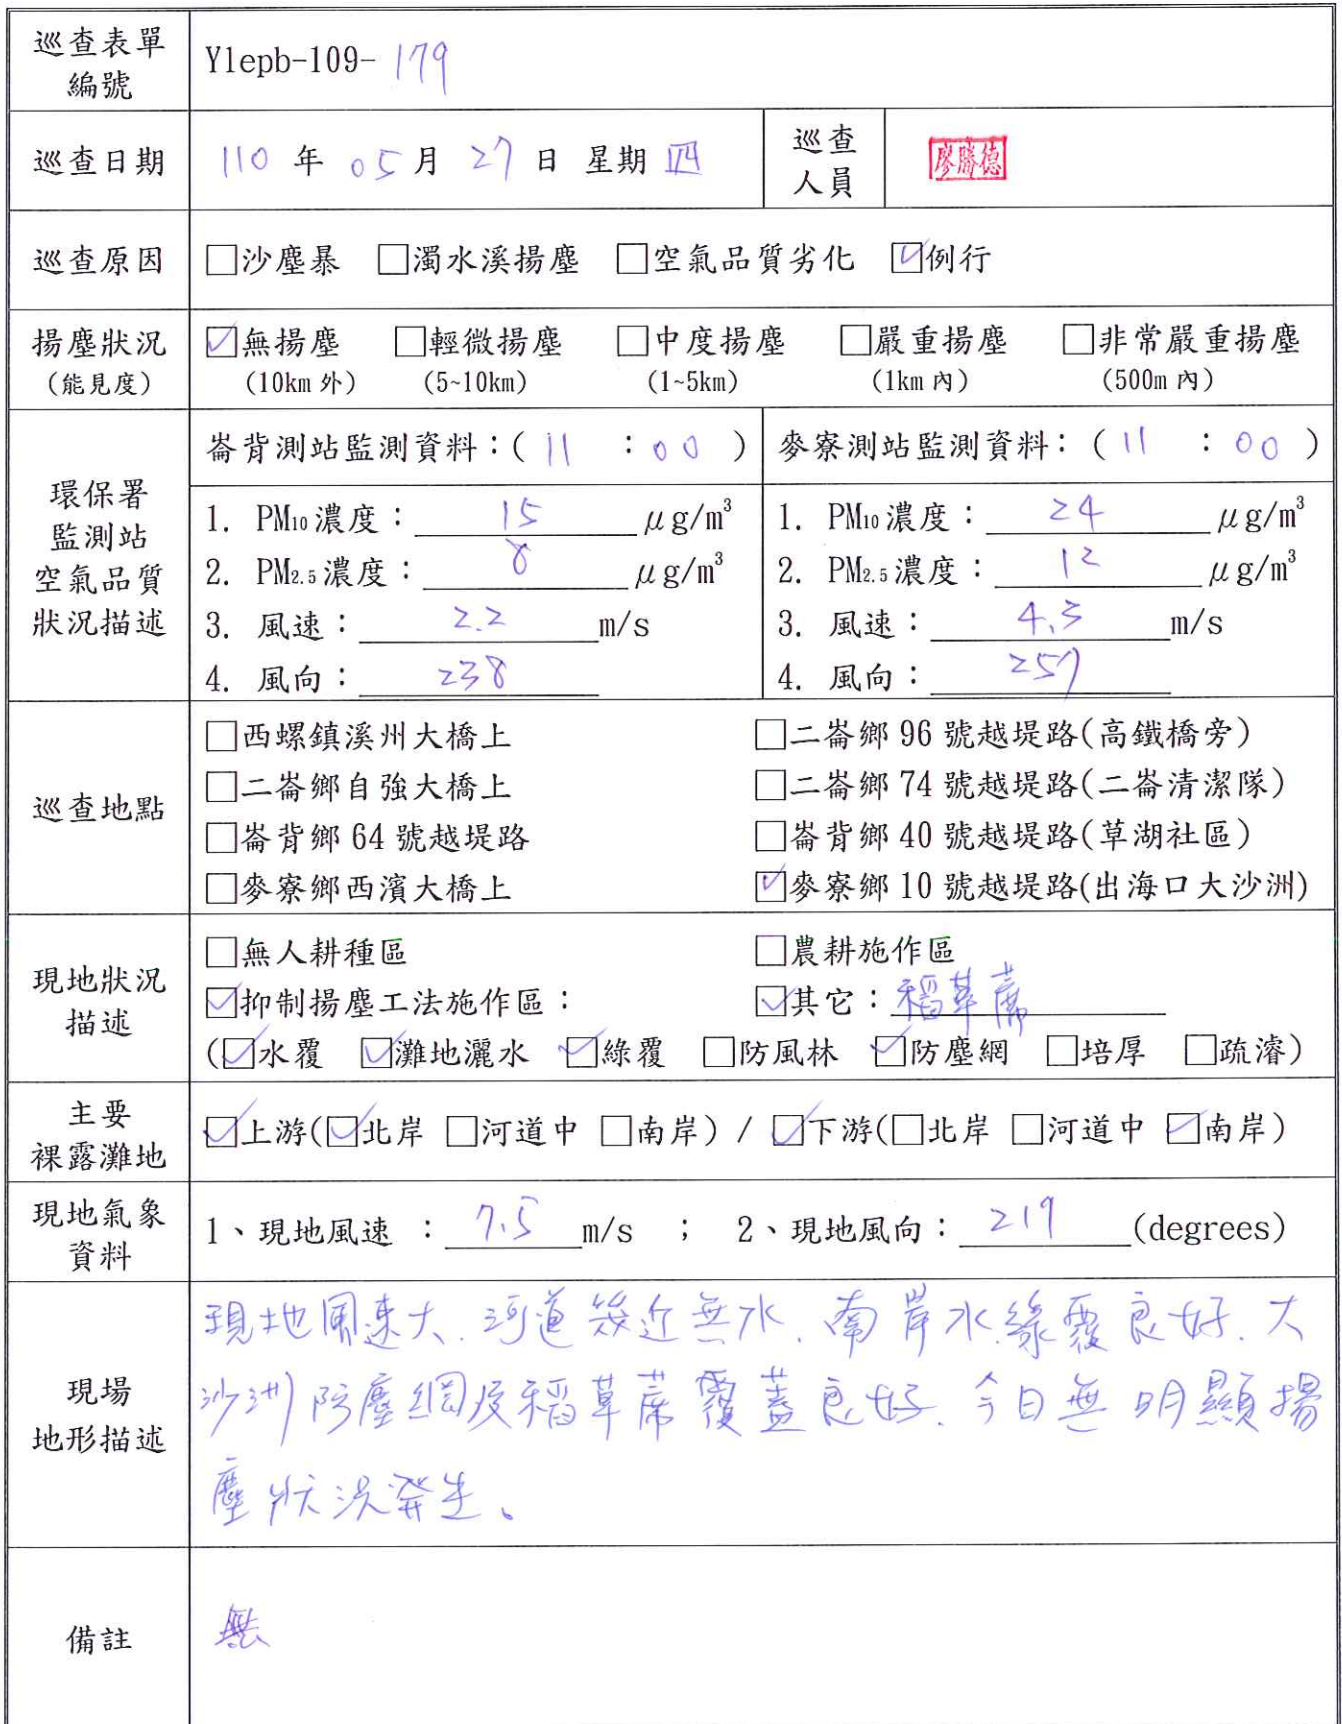 巡查表單
編號
Ylepb-109-179
巡查日期
110 年 05 月 27 日 星期 四
巡查
人員
廖勝德
巡查原因
□沙塵暴 □濁水溪揚塵 □空氣品質劣化 ☑例行
揚塵狀況
(能見度)
☑無揚塵 □輕微揚塵 □中度揚塵 □嚴重揚塵 □非常嚴重揚塵
(10km 外) (5~10km) (1~5km) (1km 內) (500m 內)
環保署
監測站
空氣品質
狀況描述
崙背測站監測資料：( 11 : 00 )
1. PM10 濃度：15 μg/m³
2. PM2.5 濃度：8 μg/m³
3. 風速：2.2 m/s
4. 風向：238
麥寮測站監測資料：( 11 : 00 )
1. PM10 濃度：24 μg/m³
2. PM2.5 濃度：12 μg/m³
3. 風速：4.3 m/s
4. 風向：257
巡查地點
□西螺鎮溪州大橋上 □二崙鄉 96 號越堤路(高鐵橋旁)
□二崙鄉自強大橋上 □二崙鄉 74 號越堤路(二崙清潔隊)
□崙背鄉 64 號越堤路 □崙背鄉 40 號越堤路(草湖社區)
□麥寮鄉西濱大橋上 ☑麥寮鄉 10 號越堤路(出海口大沙洲)
現地狀況
描述
□無人耕種區 □農耕施作區
☑抑制揚塵工法施作區： ☑其它：稻草蓆
(☑水覆 ☑灘地灑水 ☑綠覆 □防風林 ☑防塵網 □培厚 □疏濬)
主要
裸露灘地
☑上游(☑北岸 □河道中 □南岸) / ☑下游(□北岸 □河道中 ☑南岸)
現地氣象
資料
1、現地風速 ：7.5 m/s ； 2、現地風向：219 (degrees)
現場
地形描述
現地風速大、河道幾近無水、南岸水綠覆良好、大
沙洲防塵網及稻草蓆覆蓋良好、今日無明顯揚
塵狀況發生。
備註
無